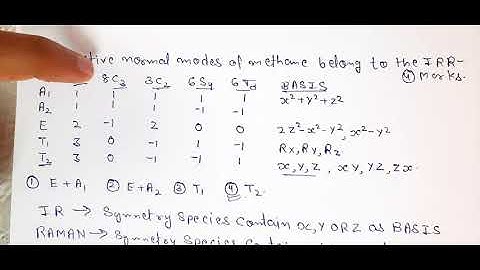 tive normal modes of methane belong to the IRR-
④ Marks.
8C₃ 3C₂ 6S₄ 6Td BASIS
A₁ 1 1 1 1 1 x²+y²+z²
A₂ 1 1 1 -1 -1
E 2 -1 2 0 0 2z²-x²-y², x²-y²
T₁ 3 0 -1 1 -1 Rx, Ry, Rz
T₂ 3 0 -1 -1 1 x, y, z, xy, yz, zx.
① E+A₁ ② E+A₂ ③ T₁ ④ T₂.
IR → Symmetry species contain x, y or z as BASIS
RAMAN → Symmetry species